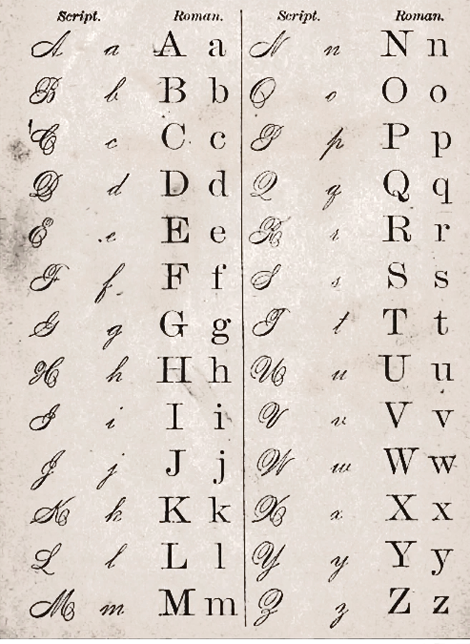 Script. Roman. Script. Roman.
A a A a N n N n
B b B b O o O o
C c C c P p P p
D d D d Q q Q q
E e E e R r R r
F f F f S s S s
G g G g T t T t
H h H h U u U u
I i I i V v V v
J j J j W w W w
K k K k X x X x
L l L l Y y Y y
M m M m Z z Z z